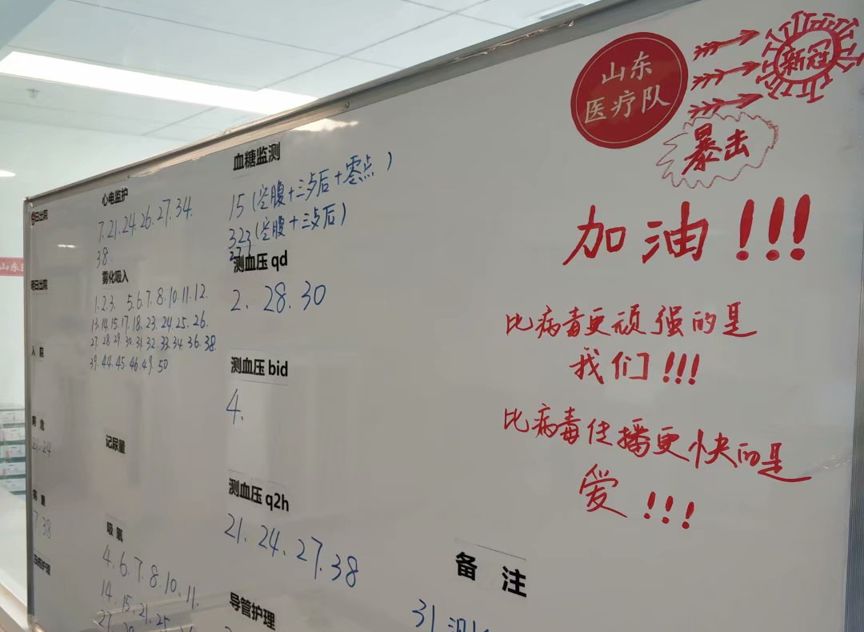 山东
医疗队
新冠
暴击
加油!!!
比病毒更顽强的是
我们!!!
比病毒传播更快的是
爱!!!
血糖监测
15(空腹+三餐后+零点)
323(空腹+三餐后)
测血压 qd
2. 28. 30
测血压 bid
4.
测血压 q2h
21. 24. 27. 38
导管护理
心电监护
7.21.24.26.27.34.
38.
雾化吸入
1.2.3. 5.6.7.8.10.11.12.
13.14.15.17.18.23.24.25.26.
27.28.29.30.31.32.33.34.36.38.
39.44.45.46.49.50
记尿量
吸氧
4.6.7.8.10.11.
14.15.21.25
明日出院
入院
7 38
备 注
31
山东